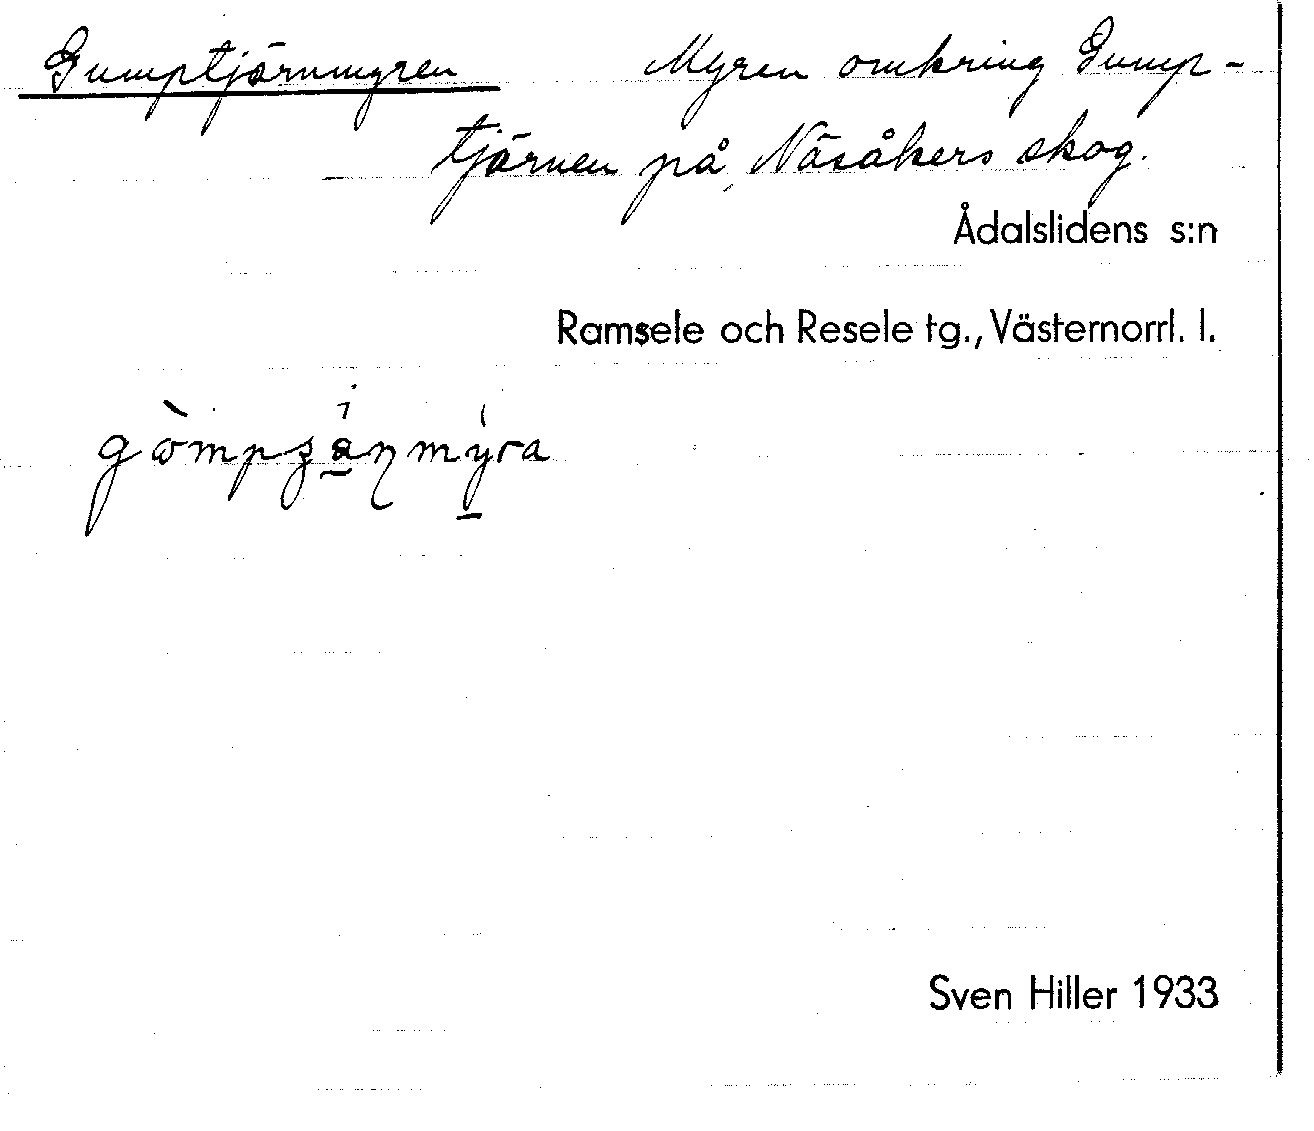 Gumptjärnmyren Myren omkring Gump-
tjärnen på Näsåkers skog.
Ådalslidens s:n
Ramsele och Resele tg., Västernorrl. l.
Sven Hiller 1933